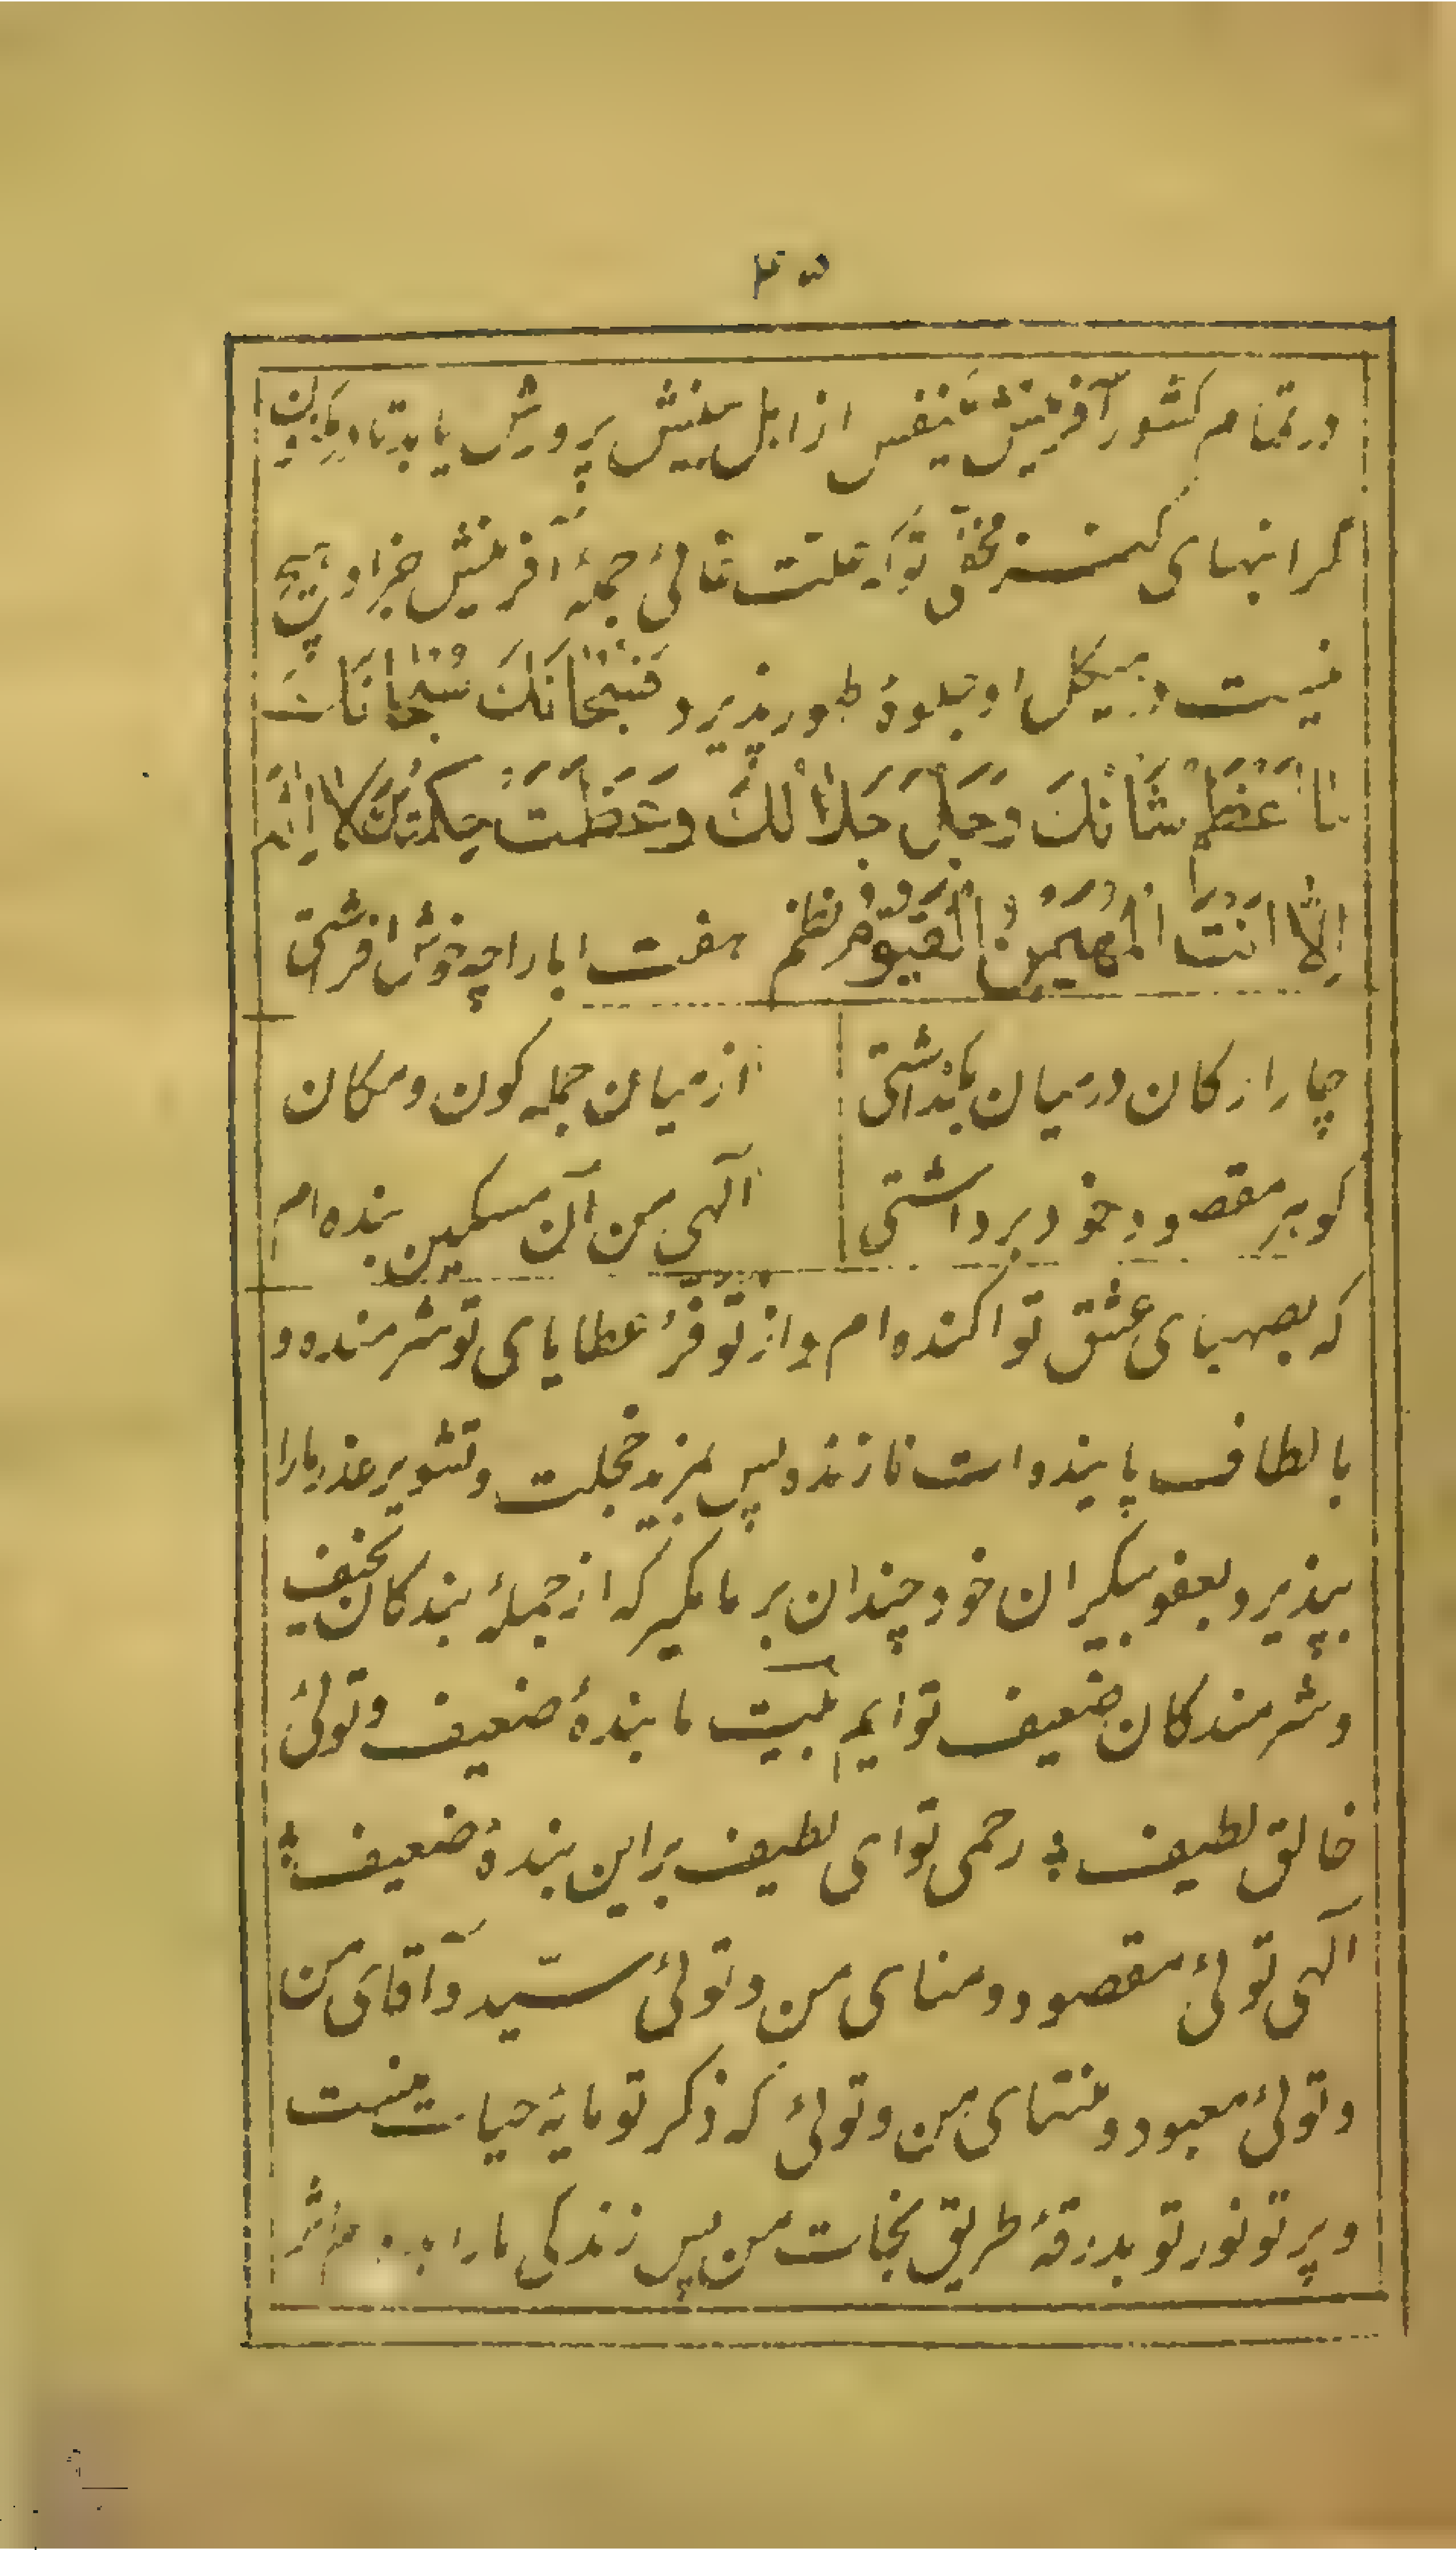 ۴۵
در تمام کشور آفرینش یکنفس از اهل بینش پرورش یابد تا در
گرانبهای کنز مخفی تو که علت غائی جملهٔ آفرینش جز او هیچ
نیست در هیکل او جلوهٔ ظهور پذیرد فَسُبْحانَکَ سُبْحانَکَ
ما اَعْظَمَ شَأنَکَ وَجَلَّ جَلالُکَ وَعَظُمَتَ حِکمَتُکَ لا اِلهَ
اِلّا اَنْتَ الْمُهَیْمِنُ الْقَیُّومُ نظم هفت ابا را چه خوش افرشتی
چار ارکان در میان بگذاشتی
از میان جمله کون و مکان
گوهر مقصود خود برداشتی
الهی من آن مسکین بنده ام
که بصهبای عشق تو اکنده ام و از توفّر عطایای تو شرمنده و
بالطاف پاینده ات نازنده پس مزید خجلت و تشویر عذر ما را
بپذیر و بعفو بیکران خود چندان بر ما مگیر که از جملهٔ بندگان نحیف
و شرمندگان ضعیف تو ایم بیت ما بندهٔ ضعیف و توئی
خالق لطیف ؛ رحمی تو ای لطیف بر این بندهٔ ضعیف ؛
الهی توئی مقصود و منای من و توئی سیّد و آقای من
و توئی معبود و منتهای من و توئی که ذکر تو مایهٔ حیات منست
و پرتو نور تو بدرقهٔ طریق نجات من پس زندگی ما را